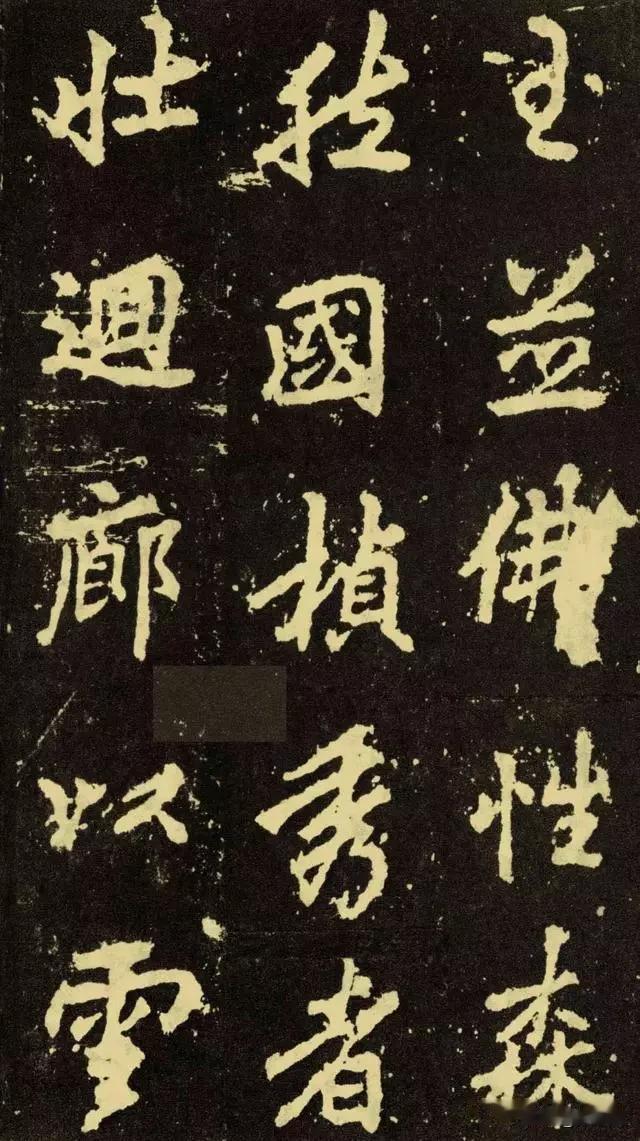 玉並佛性森
挺國楨秀者
壯迴廊以雲